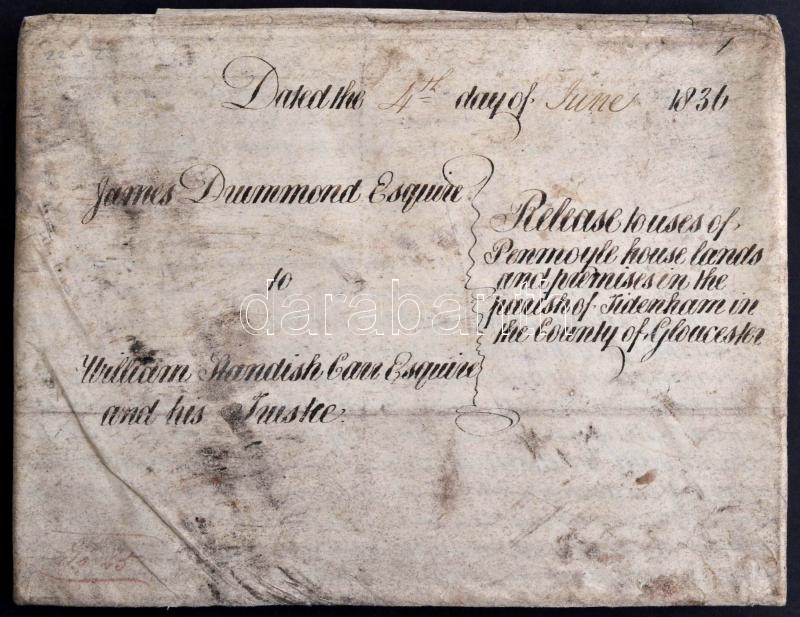 Dated the 4th day of June 1836
James Drummond Esquire
to
William Standish Carr Esquire
and his Trustee.
Release to uses of
Penmoyle house lands
and premises in the
parish of Tidenham in
the County of Gloucester
darabanth